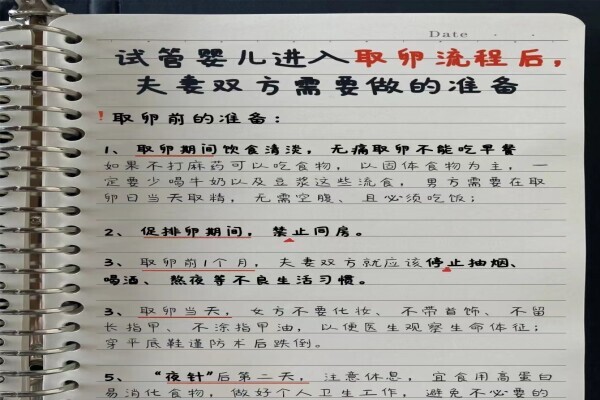 Date
试管婴儿进入取卵流程后,
夫妻双方需要做的准备
!取卵前的准备:
1、取卵期间饮食清淡,无痛取卵不能吃早餐
如果不打麻药可以吃食物,以固体食物为主,一
定要少喝牛奶以及豆浆这些流食,男方需要在取
卵日当天取精,无需空腹、且必须吃饭;
2、促排卵期间,禁止同房。
3、取卵前1个月,夫妻双方就应该停止抽烟、
喝酒、熬夜等不良生活习惯。
3、取卵当天,女方不要化妆、不带首饰、不留
长指甲、不涂指甲油,以便医生观察生命体征;
穿平底鞋谨防术后跌倒。
5、“夜针”后第二天,注意休息,宜食用高蛋白
易消化食物,做好个人卫生工作,避免不必要的